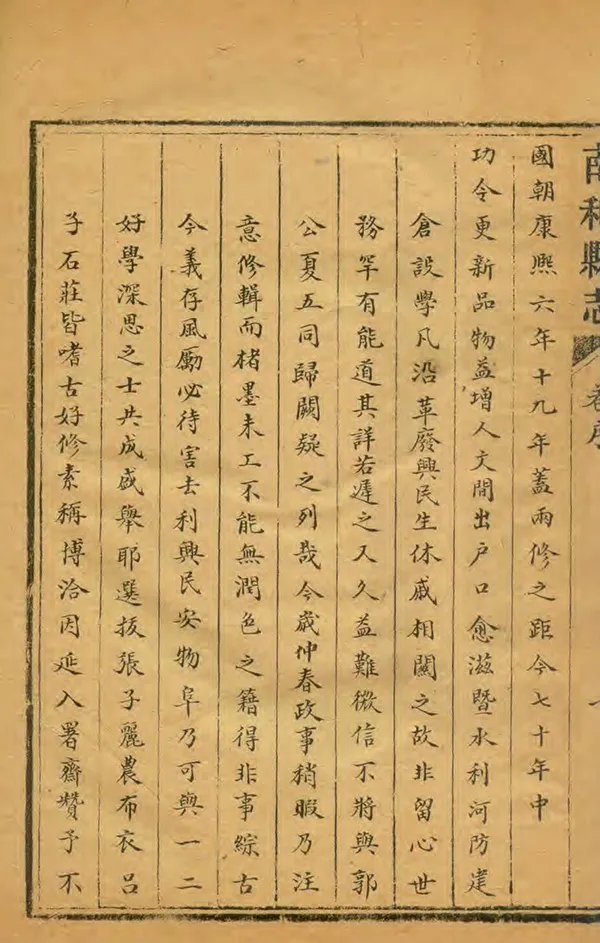 南和縣志
卷序
國朝康熙六年十九年蓋兩修之距今七十年中
功令更新品物益增人文間出户口愈滋暨水利河防建
倉設學凡沿革廢興民生休戚相關之故非留心世
務罕有能道其詳若遲之又久益難徵信不將與郭
公夏五同歸闕疑之列哉今歲仲春政事稍暇乃注
意修輯而楮墨未工不能無潤色之籍得非事綜古
今義存風勵必待害去利興民安物阜乃可與一二
好學深思之士共成盛舉耶選拔張子麗農布衣吕
子石莊皆嗜古好修素稱博洽因延入署齋贊予不